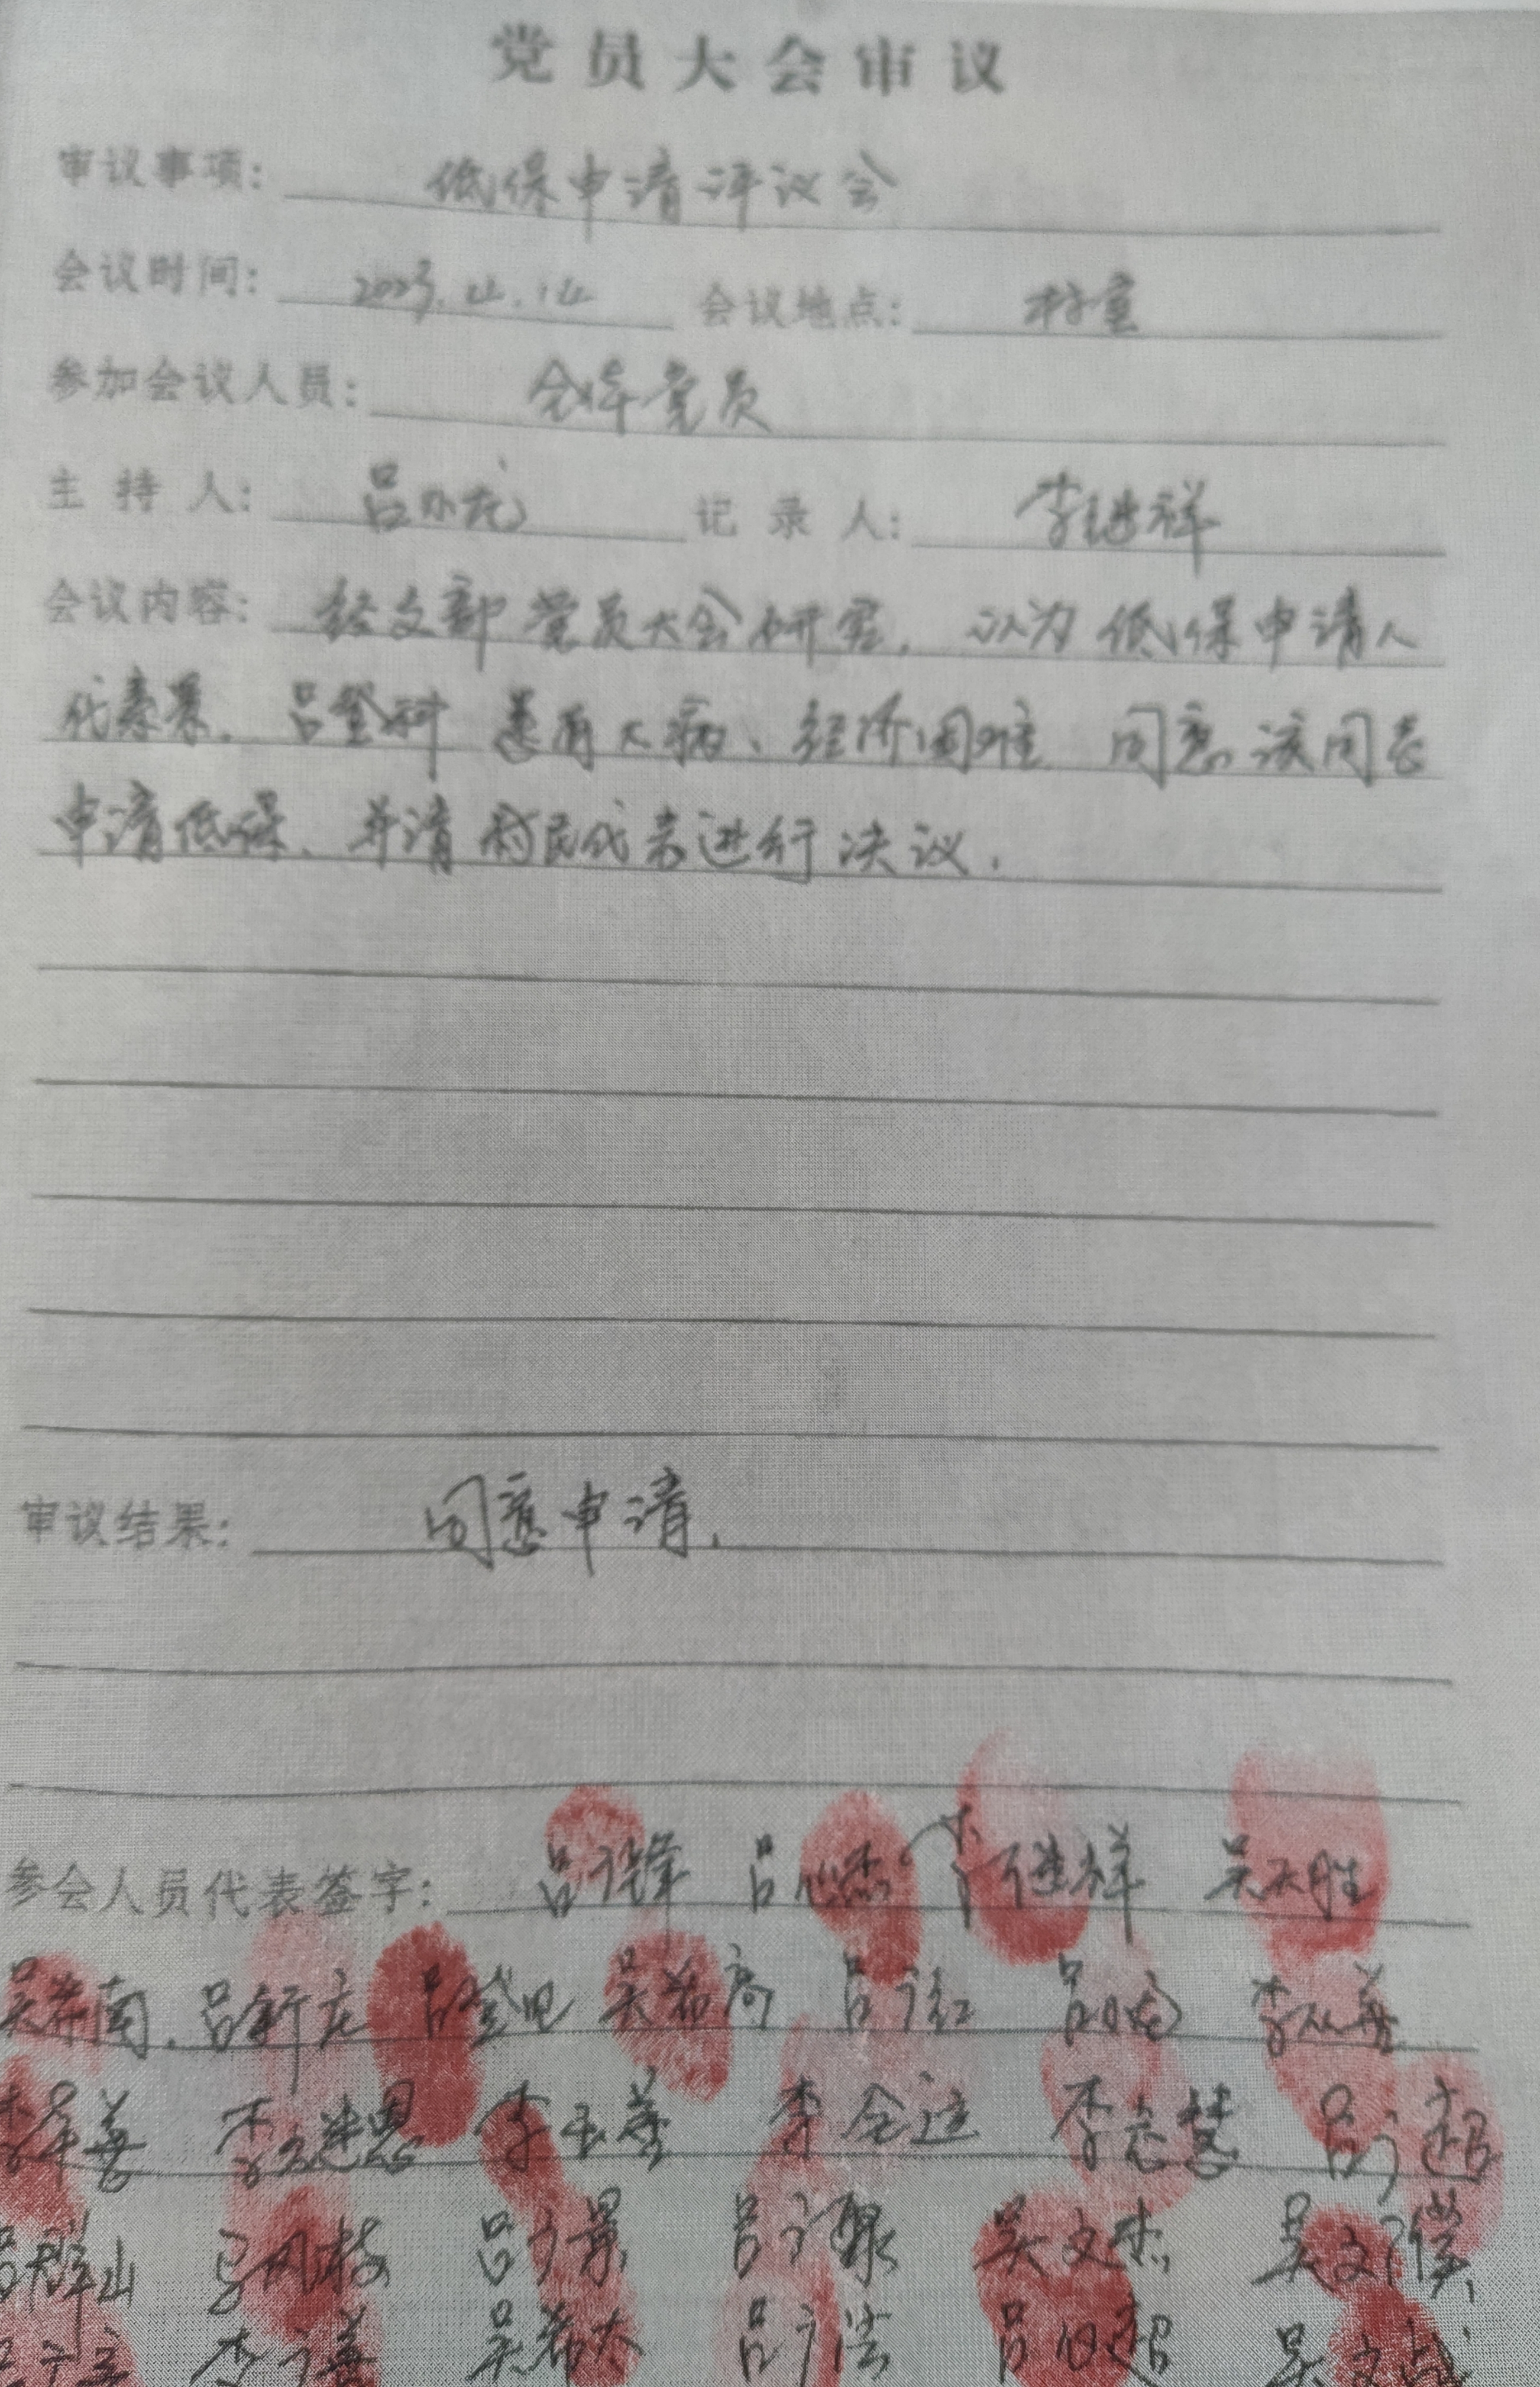 党员大会审议
审议事项: 低保申请评议会
会议时间: 2023.4.14 会议地点: 村室
参加会议人员: 全体党员
主持人: 吕 龙 记录人: 李继祥
会议内容: 经支部党员大会研究, 认为低保申请人
代素 . 吕登科 患有大病、经济困难 同意该同志
申请低保、并请村民代表进行决议.
审议结果: 同意申请.
参会人员代表签字: 吕广锋 吕 杰 李继祥 吴天胜
南. 吕新龙 吕登 吴 高 吕广红 吕 李 善
善 李继恩 李玉 李全 李志慧 吕广超
群山 马凤枝 吕广景 吕广聚 吴文杰 吴文
李广善 吴 太 吕广 吕 超 吴文